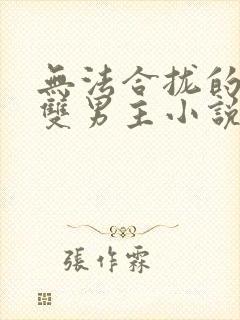 無法合拢的
雙男主小說
張作霖